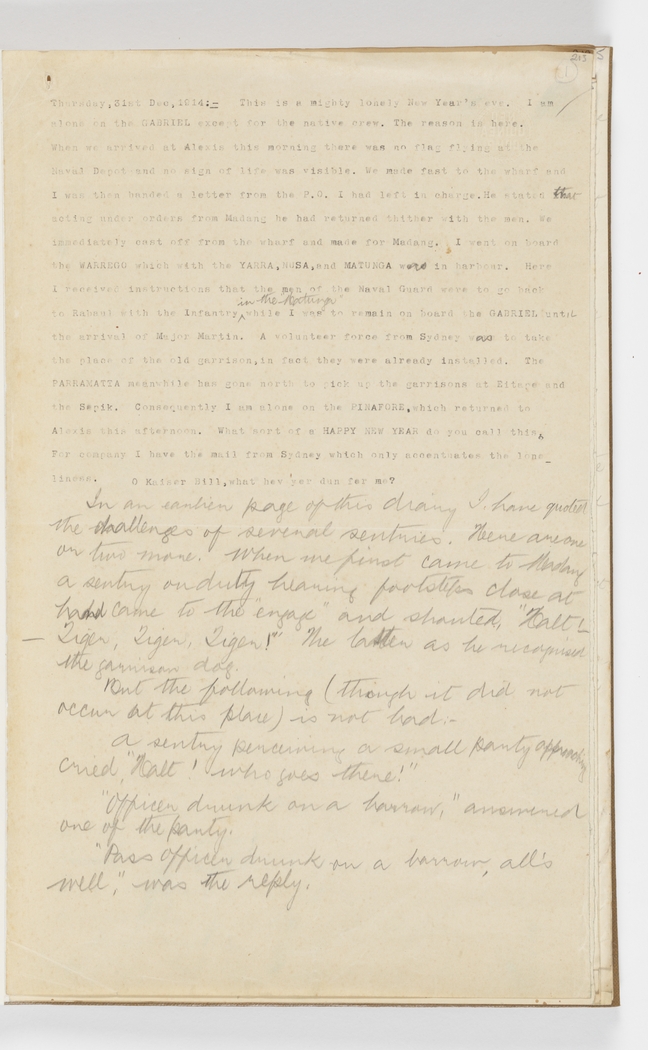 213
1
Thursday, 31st Dec, 1914:- This is a mighty lonely New Year's eve. I am
alone on the GABRIEL except for the native crew. The reason is here.
When we arrived at Alexis this morning there was no flag flying at the
Naval Depot and no sign of life was visible. We made fast to the wharf and
I was then handed a letter from the P.O. I had left in charge. He stated that
acting under orders from Madang he had returned thither with the men. We
immediately cast off from the wharf and made for Madang. I went on board
the WARREGO which with the YARRA, NUSA, and MATUNGA were in harbour. Here
I received instructions that the men of the Naval Guard were to go back
in the "Matunga"
to Rabaul with the Infantry while I was to remain on board the GABRIEL until
the arrival of Major Martin. A volunteer force from Sydney was to take
the place of the old garrison, in fact they were already installed. The
PARRAMATTA meanwhile has gone north to pick up the garrisons at Eitape and
the Sepik. Consequently I am alone on the PINAFORE, which returned to
Alexis this afternoon. What sort of a HAPPY NEW YEAR do you call this,
For company I have the mail from Sydney which only accentuates the lone_
liness. O Kaiser Bill, what hev yer dun for me?
In an earlier page of this diary I have quoted
the challenges of several sentries. Here are one
or two more. When we first came to Madang
a sentry on duty hearing footsteps close at
hand came to the "engage" and shouted, "Halt! –
– Tiger, Tiger, Tiger!" The latter as he recognised
the garrison dog.
But the following (though it did not
occur at this place) is not bad:-
A sentry perceiving a small party approaching
cried, "Halt! who goes there!"
"Officer drunk on a barrow," answered
one of the party.
"Pass Officer drunk on a barrow, all's
well," was the reply.